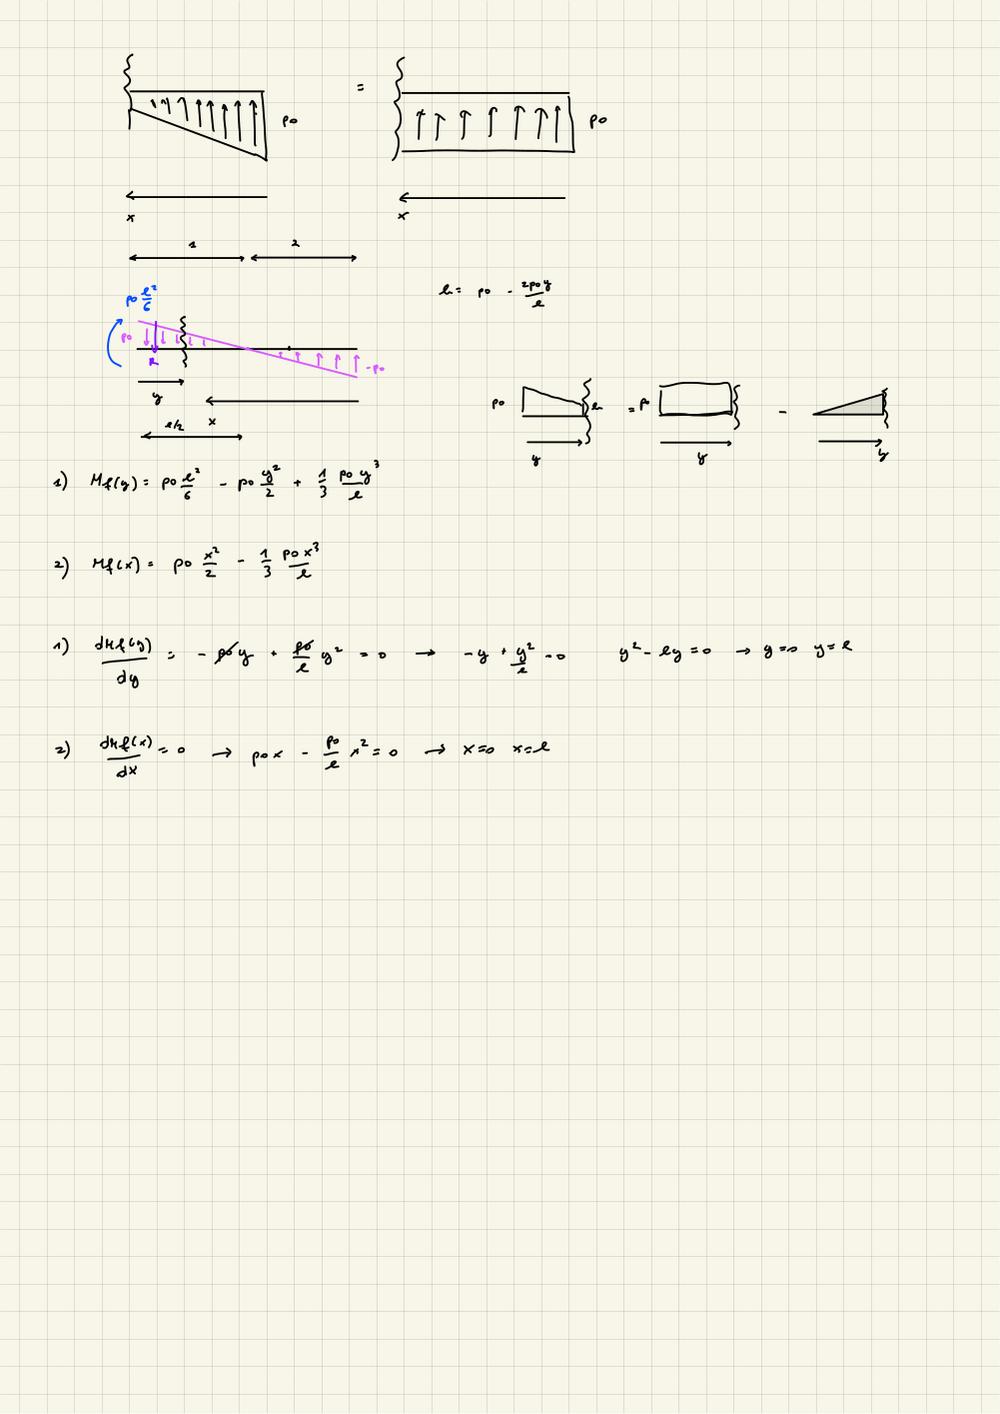 = po po
x x
1 2
po l²/6
h = po - 2poy/l
po R -po
y x
l/2
po h = po -
y y y
1) Mf(y) = po l²/6 - po y²/2 + 1/3 po y³/l
2) Mf(x) = po x²/2 - 1/3 po x³/l
1) dMf(y)/dy = - po y + po/l y² = 0 → -y + y²/l = 0 y² - ly = 0 → y=0 y=l
2) dMf(x)/dx = 0 → po x - po/l x² = 0 → x=0 x=l